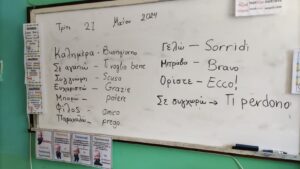 Τρίτη 21 Μαΐου 2024
Καλημέρα - Buongiorno
Σε αγαπώ - Ti voglio bene
Συγγνώμη - Scusa
Ευχαριστώ - Grazie
Μπορώ - potere
Φίλος - amico
Παρακαλώ - prego
Γελώ - Sorridi
Μπράβο - Bravo
Ορίστε - Ecco!
Σε συγχωρώ → Ti perdono